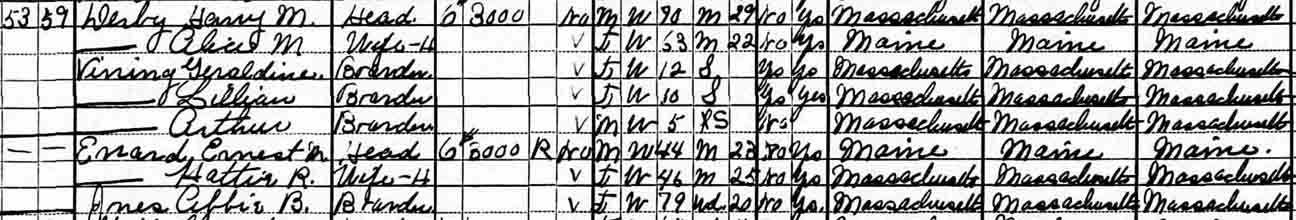 53 59 Derby Harry M. Head O 3000 No M W 70 M 29 No Yes Massachusetts Massachusetts Massachusetts
— Alice M Wife-H V F W 53 M 22 No Yes Maine Maine Maine
Vining Geraldine. Boarder V F W 12 S Yes Yes Massachusetts Massachusetts Massachusetts
— Lillian Boarder V F W 10 S Yes Yes Massachusetts Massachusetts Massachusetts
— Arthur Boarder V M W 5 S No Massachusetts Massachusetts Massachusetts
— — Ernest M Head O 3000 R No M W 44 M 23 No Yes Maine Maine Maine.
— Hattie R. Wife-H V F W 46 M 25 No Yes Massachusetts Massachusetts Massachusetts
Abbie B. Boarder V F W 79 Wd 20 No Yes. Massachusetts Massachusetts Massachusetts